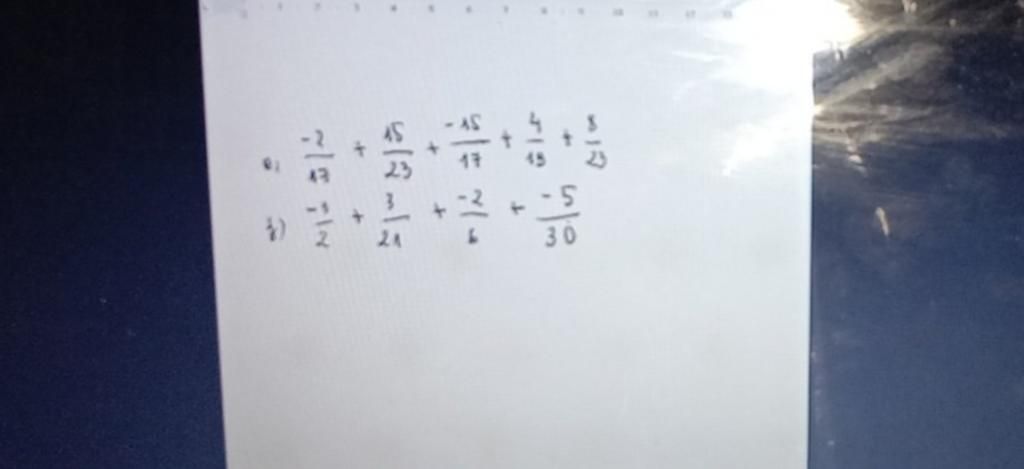 e, -2/17 + 15/23 + -15/17 + 4/19 + 8/23
f) -1/2 + 3/21 + -2/6 + -5/30